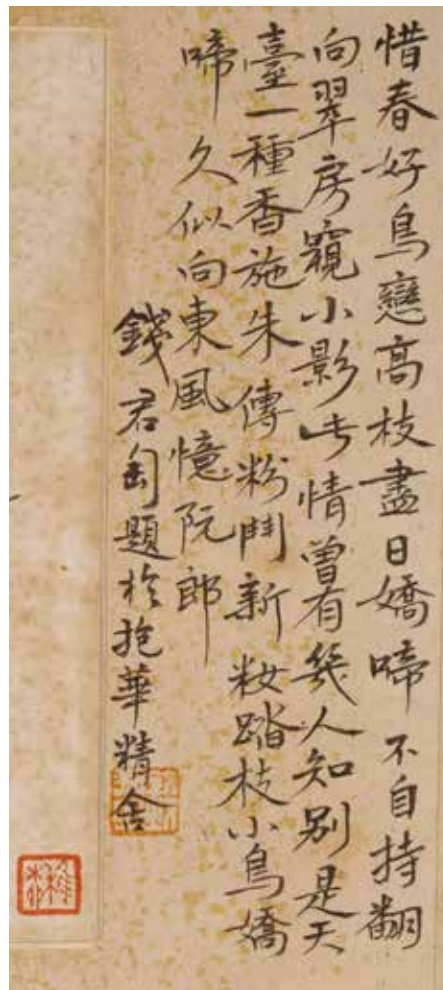 惜春好鳥戀高枝盡日嬌啼不自持翻
向翠房窺小影此情曾有幾人知別是天
臺一種香施朱傅粉鬥新籹踏枝小鳥嬌
啼久似向東風憶阮郎
錢君匋題於抱華精舍